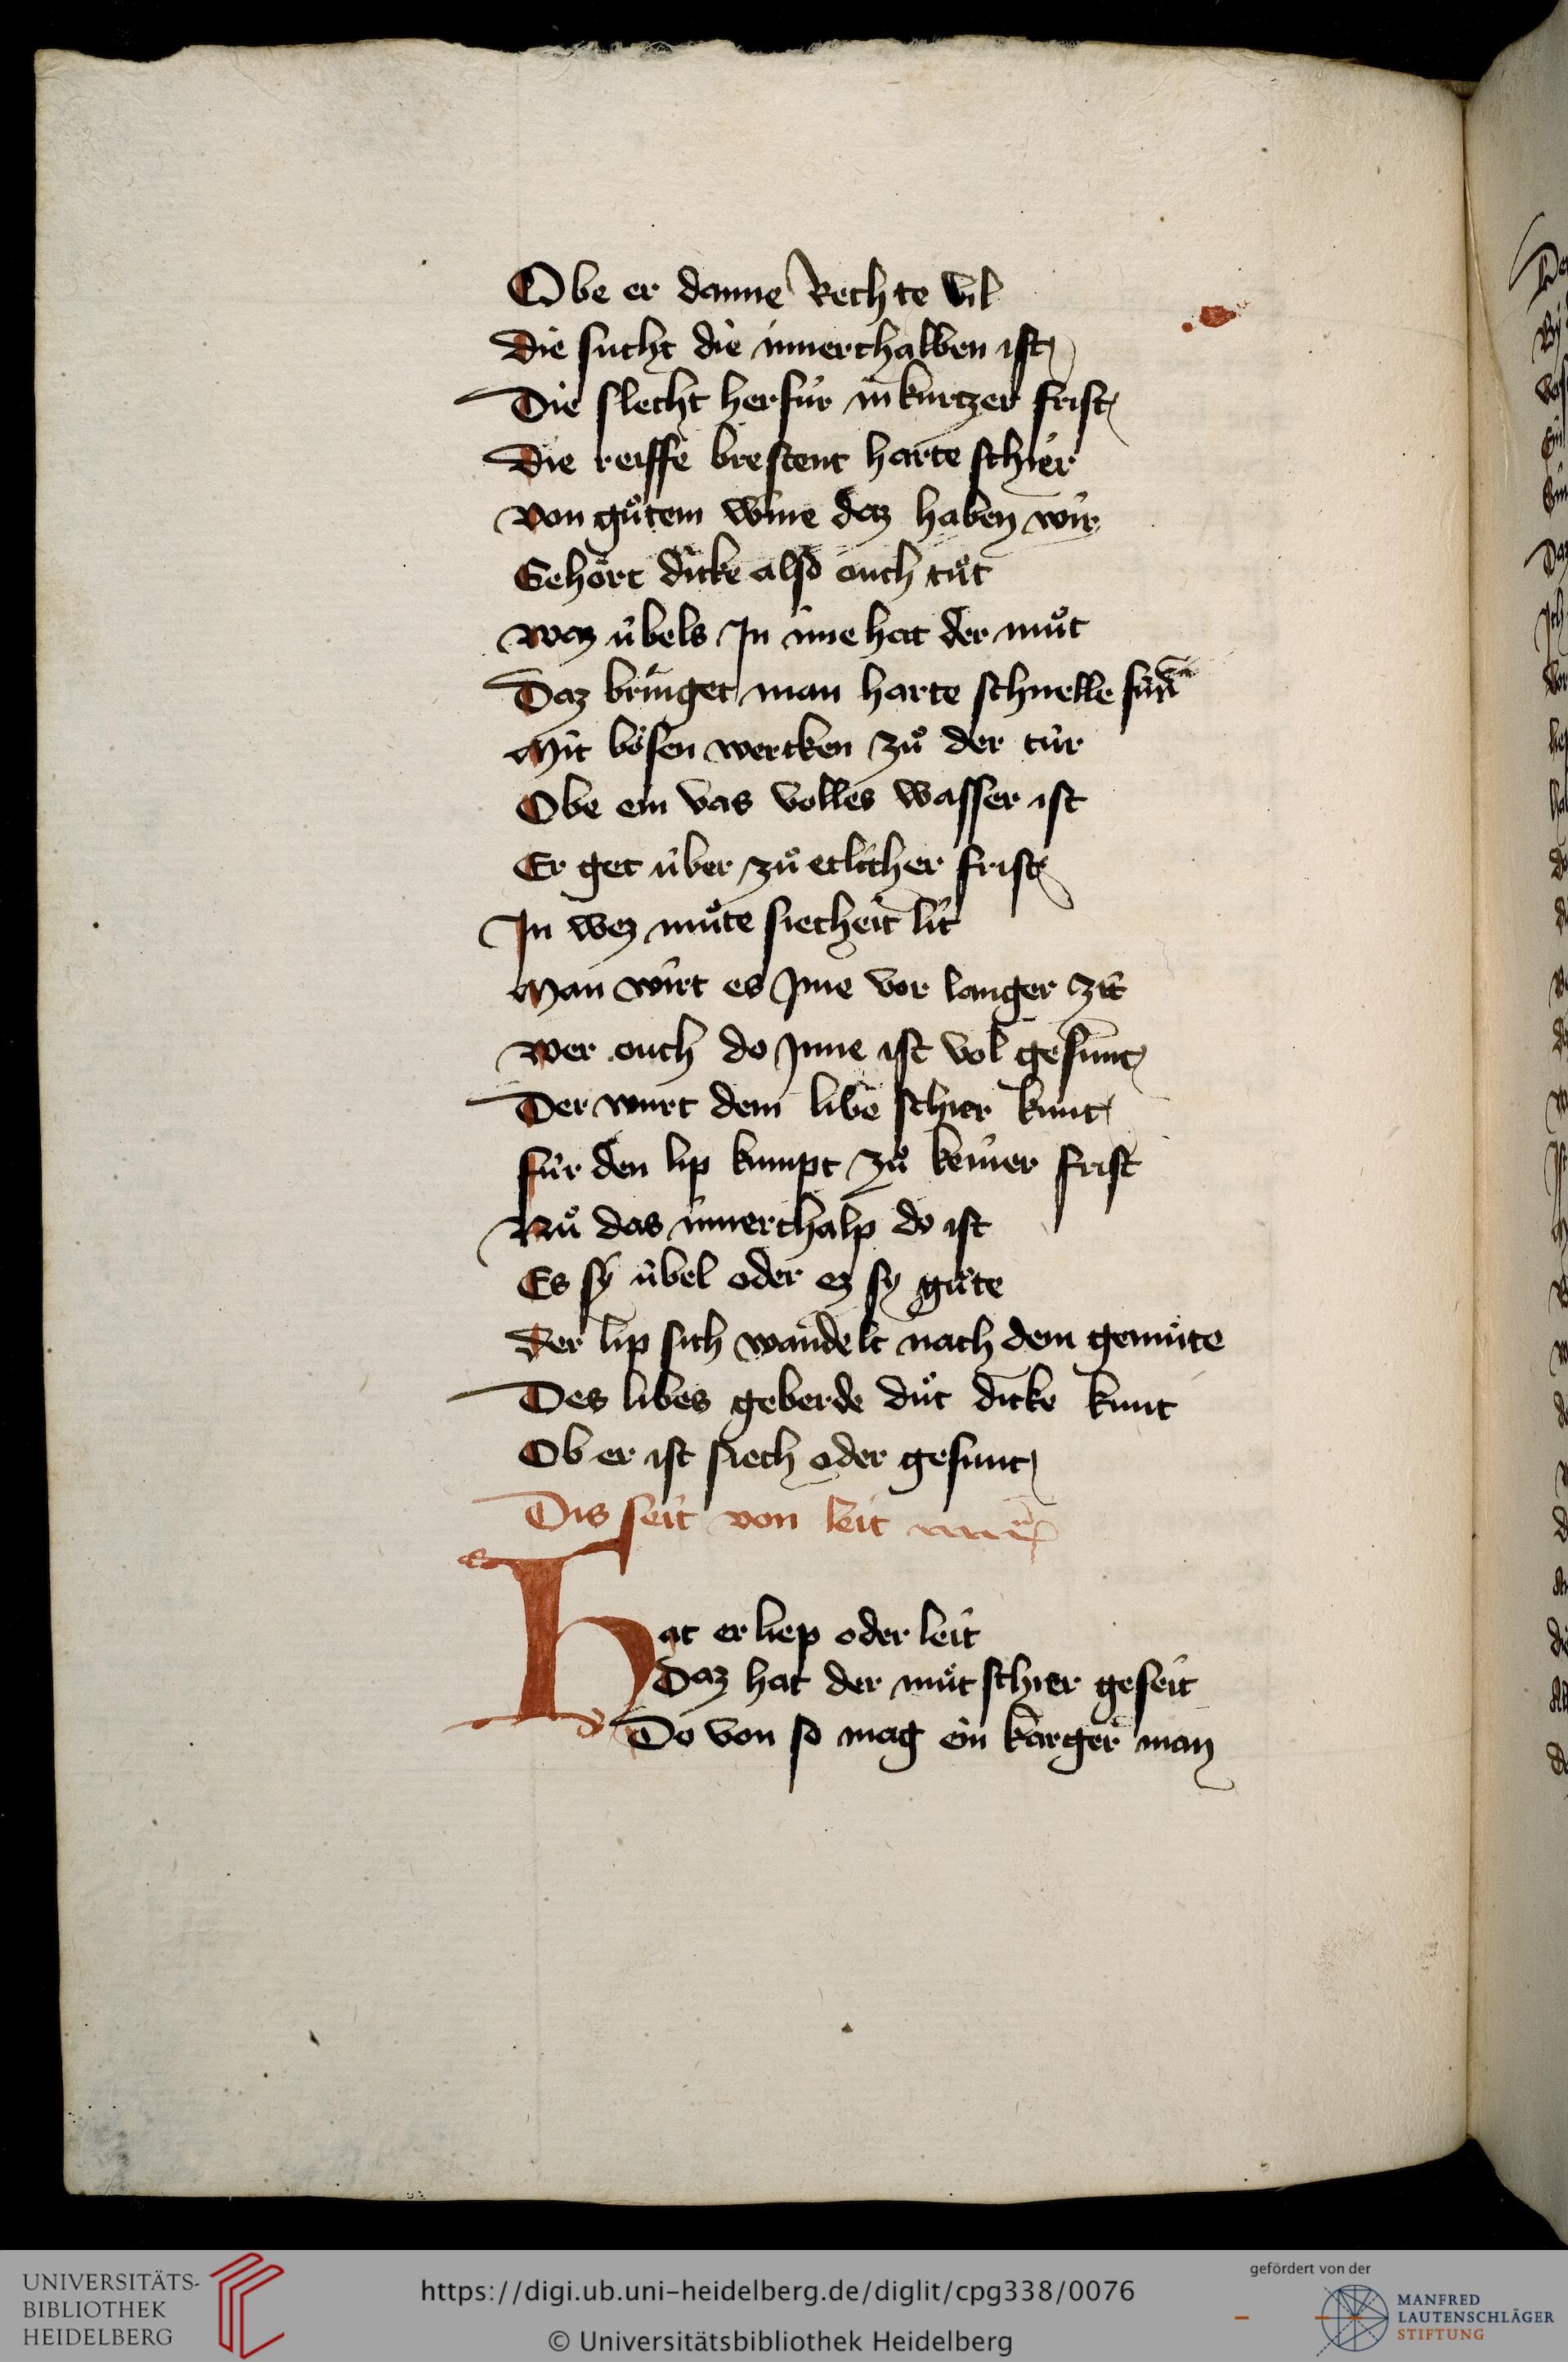 Obe er danne Rechte vil
Die sucht die innerthalben ist
Die slecht herfúr in kurtzer frist
Die reiffe brestent harte schier
von gůtem wine daz haben wir
Gehört dicke also ouch tůt
waz úbels In ime hat der můt
Daz bringet man harte schnelle fúr
Mit bösen wercken zů der túr
Obe ein vas volles wasser ist
Er get úber zů etlicher frist
In wez můte siecheit lit
Man wirt es Ime vor langer zit
wer ouch do Inne ist vol gesunt
Der wurt dem libe schier kunt
fúr den lip kumpt zů keiner frist
Nů das innerthalp do ist
Es sy úbel oder ez sy gůte
der lip sich wandelt nach dem gemúte
Des libes geberde důt dicke kunt
Ob er ist siech oder gesunt
Dis seit von leit
Hat er liep oder leit
Daz hat der můt schier geseit
Do von so mag ein karger man
UNIVERSITÄTS-
BIBLIOTHEK
HEIDELBERG
https://digi.ub.uni-heidelberg.de/diglit/cpg338/0076
© Universitätsbibliothek Heidelberg
gefördert von der
MANFRED
LAUTENSCHLÄGER
STIFTUNG